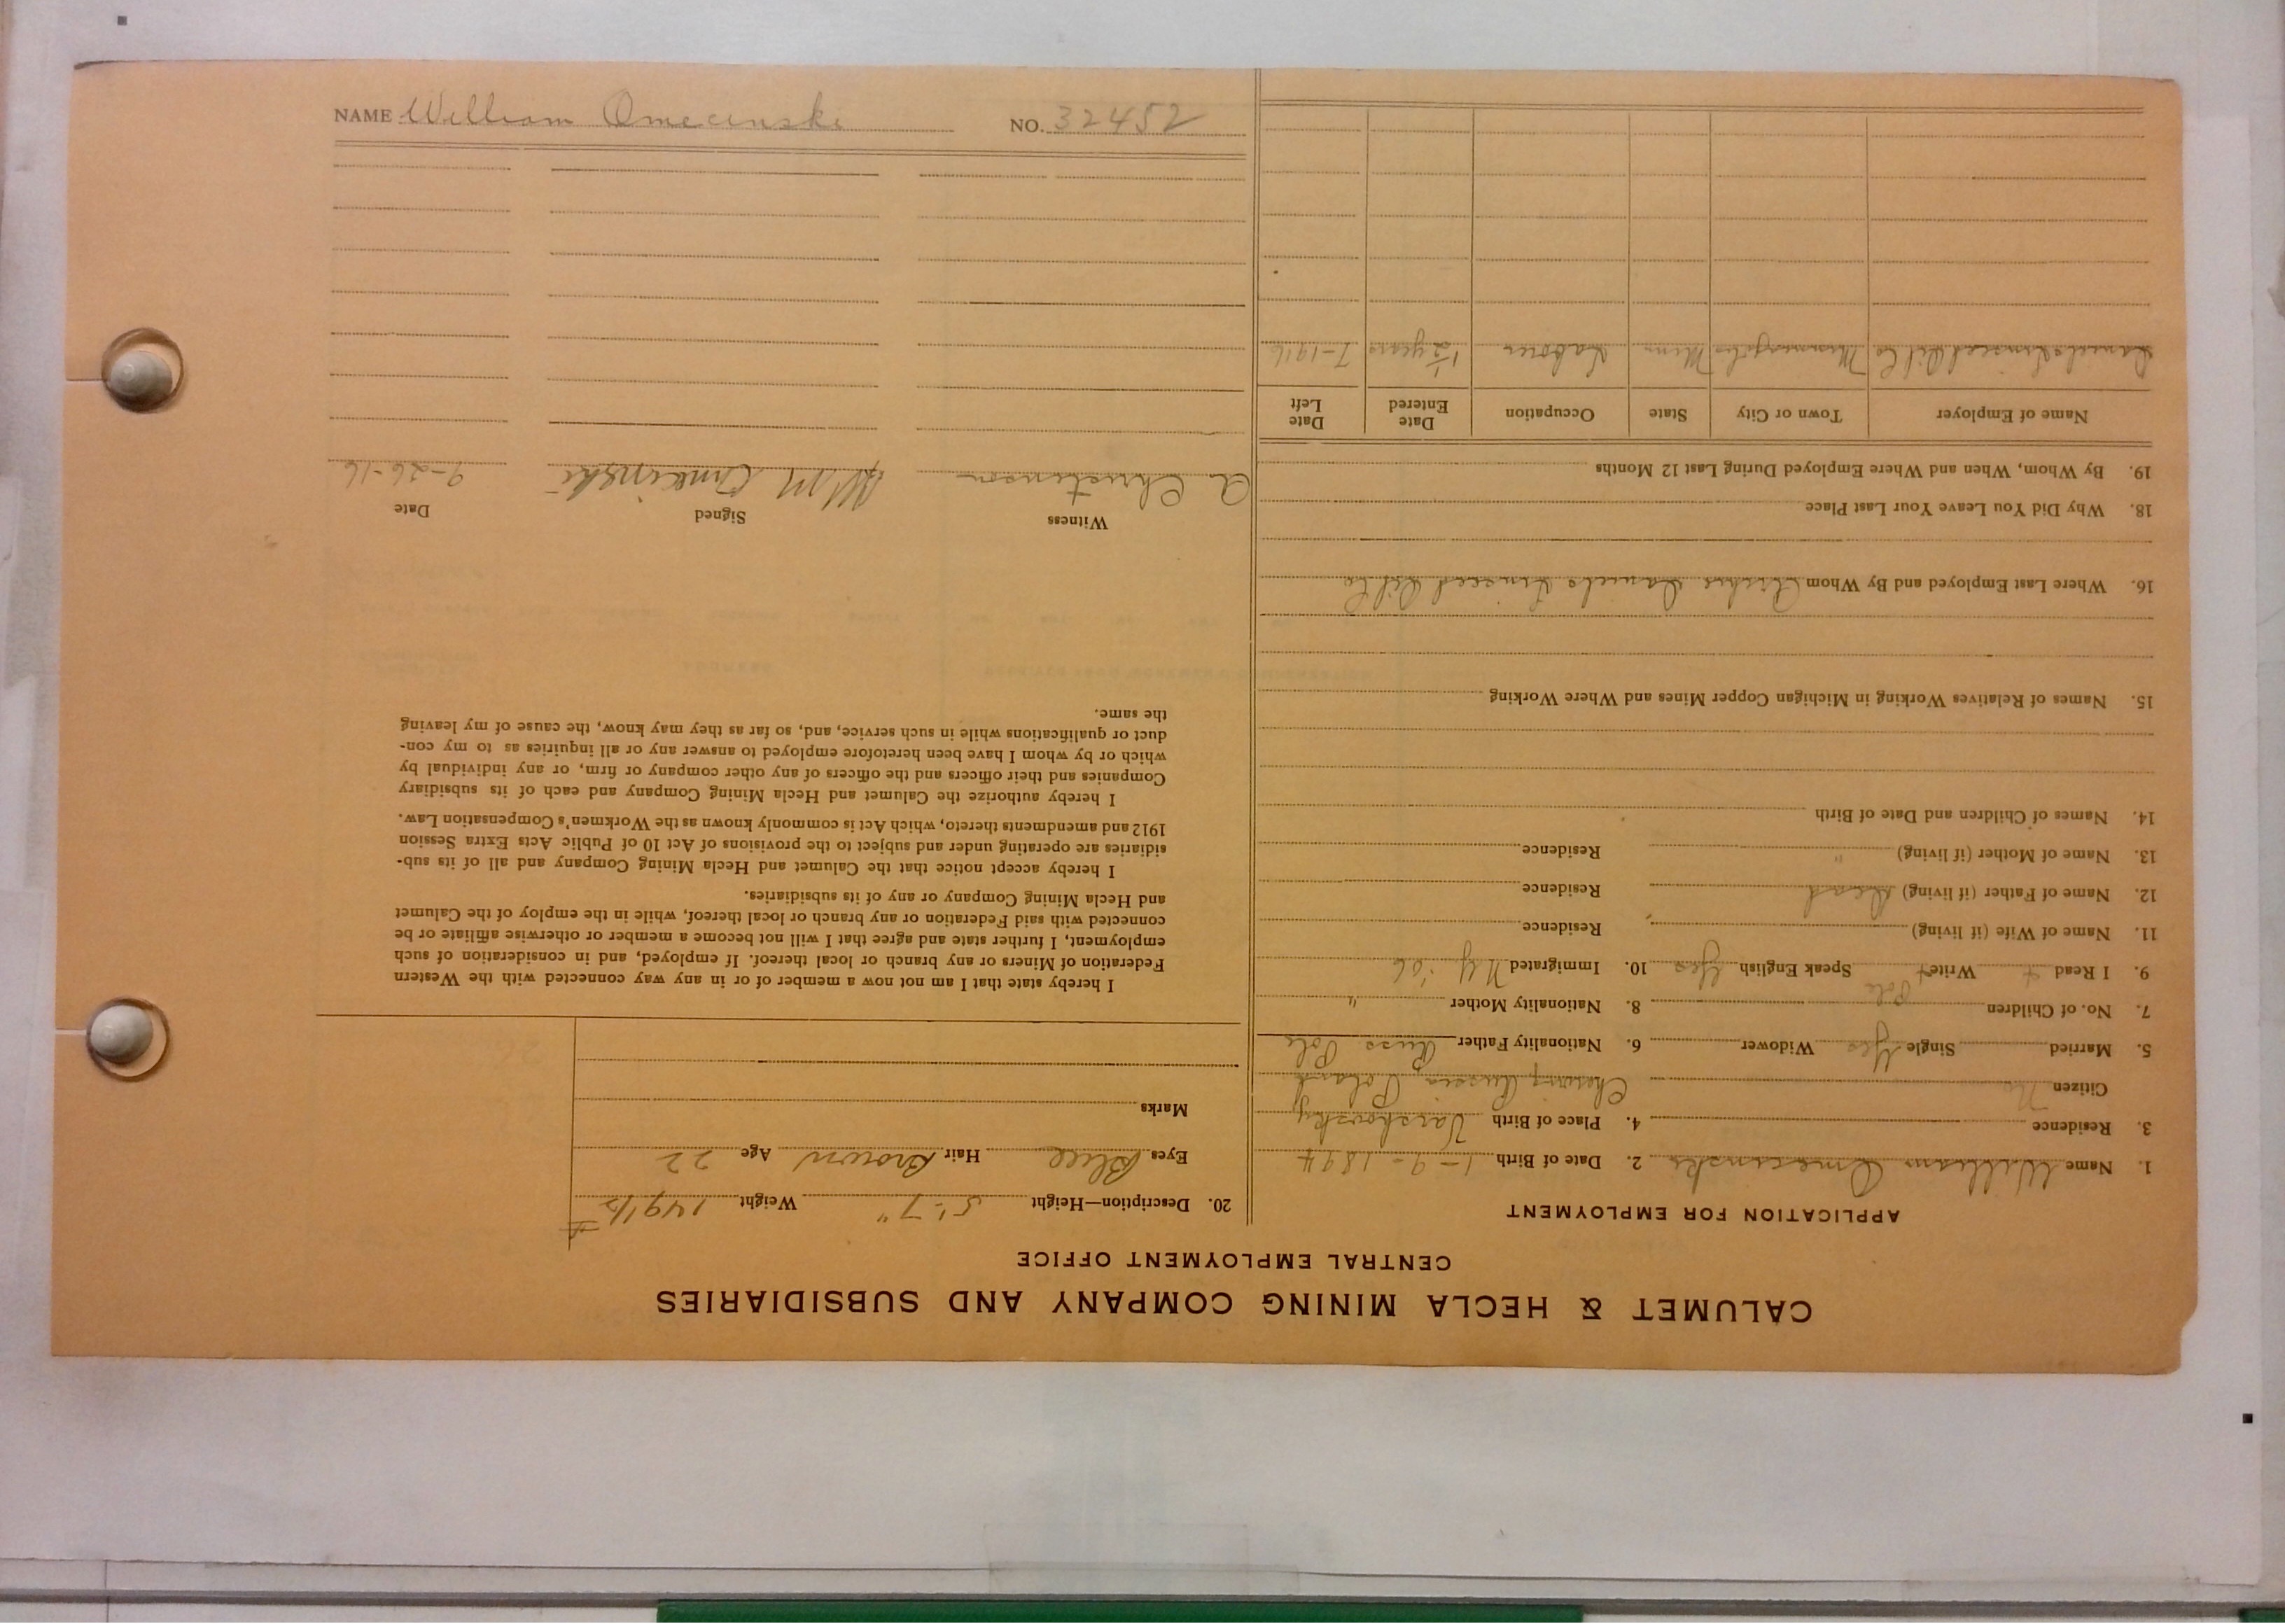 CALUMET & HECLA MINING COMPANY AND SUBSIDIARIES
CENTRAL EMPLOYMENT OFFICE
APPLICATION FOR EMPLOYMENT
1. Name William Omecinski 2. Date of Birth 1-9-1894
3. Residence 4. Place of Birth
Citizen No Russia Poland
5. Married Single Yes Widower 6. Nationality Father Russ Pole
7. No. of Children 8. Nationality Mother "
Pole
9. I Read + Write + Speak English Yes 10. Immigrated NY '06
11. Name of Wife (if living) Residence
12. Name of Father (if living) Dead Residence
13. Name of Mother (if living) " Residence
14. Names of Children and Date of Birth
15. Names of Relatives Working in Michigan Copper Mines and Where Working
16. Where Last Employed and By Whom Archer Daniels Linseed Oil Co
18. Why Did You Leave Your Last Place
19. By Whom, When and Where Employed During Last 12 Months
Name of Employer Town or City State Occupation Date Entered Date Left
Daniels Linseed Oil Co Minneapolis Minn Laborer 1½ years 7-1916
20. Description—Height 5'-7" Weight 149 lbs
Eyes Blue Hair Brown Age 22
Marks
I hereby state that I am not now a member of or in any way connected with the Western
Federation of Miners or any branch or local thereof. If employed, and in consideration of such
employment, I further state and agree that I will not become a member or otherwise affiliate or be
connected with said Federation or any branch or local thereof, while in the employ of the Calumet
and Hecla Mining Company or any of its subsidiaries.
I hereby accept notice that the Calumet and Hecla Mining Company and all of its sub-
sidiaries are operating under and subject to the provisions of Act 10 of Public Acts Extra Session
1912 and amendments thereto, which Act is commonly known as the Workmen's Compensation Law.
I hereby authorize the Calumet and Hecla Mining Company and each of its subsidiary
Companies and their officers and the officers of any other company or firm, or any individual by
which or by whom I have been heretofore employed to answer any or all inquiries as to my con-
duct or qualifications while in such service, and, so far as they may know, the cause of my leaving
the same.
Witness Signed Date
A Christenson WM Omecinski 9-26-16
NAME William Omecinski NO. 32452